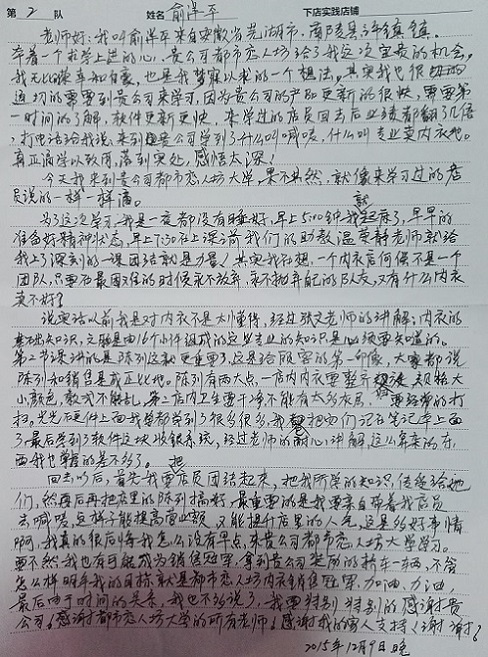 第 2 队 姓名 俞萍平 下店实践店铺
老师好：我叫俞萍平来自安徽省芜湖市，南陵县三里镇
奔着一个求学上进的心，贵公司都市恋人坊给了我这次宝贵的机会，
我无比荣幸和自豪，也是我梦寐以求的一个想法，其实我也很
迫切的需要到贵公司来学习，因为贵公司的产品更新的很快，需要第
一时间的了解，软件更新更快，来学过的店员回去后业绩都翻了几倍，
打电话给我说，来到贵公司学到了什么叫喊唛，什么叫专业卖内衣。
真正的学以致用，落到实处，感悟太深！
今天我来到贵公司都市恋人坊大学，果不其然，就像来学习过的店
员说的一样一样滴。
为了这次学习，我是一夜都没有睡好，早上5:00钟我就起床了，早早的
准备好精神状态，早上7:30在上课前我们的助教温荣静老师就给
我上了深刻的一课团结就是力量！其实我在想，一个内衣店何尝不是一个
团队，只要在最困难的时候永不放弃，永不抛弃自己的队友，又有什么内衣
卖不好？
说实话以前我是对内衣不是太懂得，经过张文老师的讲解，内衣的
基础知识，文胸是由16个小件组成的这些专业的知识是必须要知道的。
第二节课讲的是陈列这就更重要了，这是给顾客的第一印像，大家都说
陈列和销售是成正比地。陈列有两大点，一店内内衣要整齐 规格大
小颜色，款式不能乱，第二店内卫生要干净不能有太多灰尘， 要经常的打
扫。先光在硬件上面我学都学到了很多很多，我都把它们记在笔记本上面
了最后学到了软件这块收银系统，经过老师的耐心讲解，这么算来的东
西我也掌握的差不多了。
回去以后，首先我要把店员团结起来，把我所学的知识，传递给她
们，然后再把店里的陈列搞好，最重要的是我要亲自带着我店员
去喊唛，这样子能提高营业额，又能提升店里的人气，这是多好事情
啊，我真的很后悔我怎么没有早点，来贵公司都市恋人坊大学学习。
要不然我也有可能成为销售冠军，拿到贵公司奖励的轿车一辆，不管
怎么样明年我的目标就是都市恋人坊内衣销售冠军，加油，加油，
最后由于时间的关系，我也不多说了，我要特别特别的感谢贵
公司！感谢都市恋人坊大学的所有老师！感谢我的家人支持！谢谢！
2015年12月9日晚